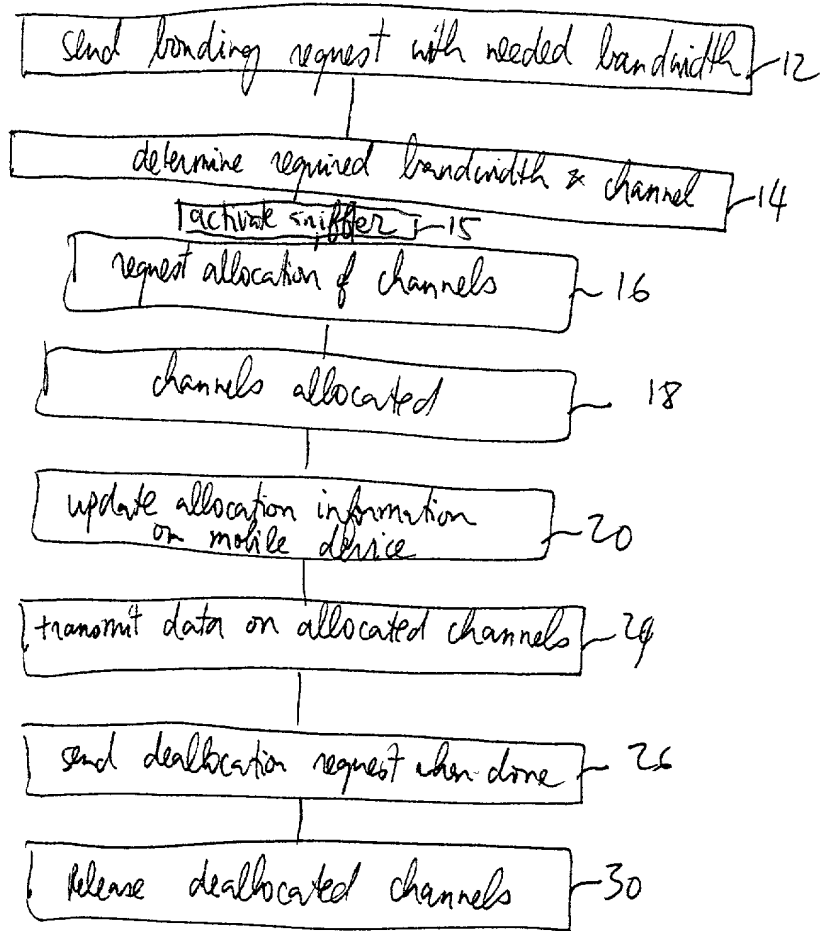 send bonding request with needed bandwidth 12
determine required bandwidth & channel 14
activate sniffer 15
request allocation of channels 16
channels allocated 18
update allocation information
on mobile device 20
transmit data on allocated channels 24
send deallocation request when done 26
Release deallocated channels 30